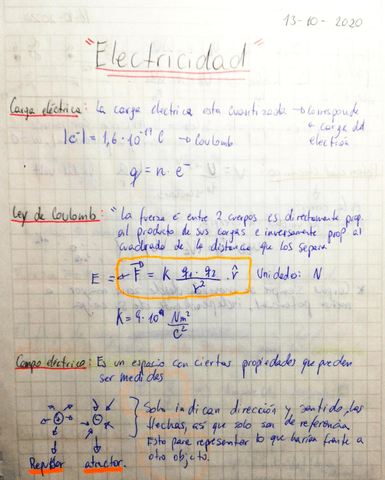 13-10-2020
"Electricidad"
Carga eléctrica: la carga electrica esta cuantizada → Corresponde
a carga del
|e⁻| = 1,6·10⁻¹⁹ C → Coulomb electrón
q = n·e⁻
Ley de Coulomb: "La fuerza e entre 2 cuerpos es directamente prop.
al producto de sus cargas e inversamente prop al
cuadrado de la distancia que los separa
E = F⃗ = K q₁·q₂/r² · r̂ Unidades: N
K = 9·10⁹ Nm²/C²
Campo eléctrico: Es un espacio con ciertas propiedades que pueden
ser medidas
Solo indican dirección y sentido, las
flechas, así que solo son de referencia
Esto para representar lo que harían frente a
otro objeto.
Repulsor atractor.